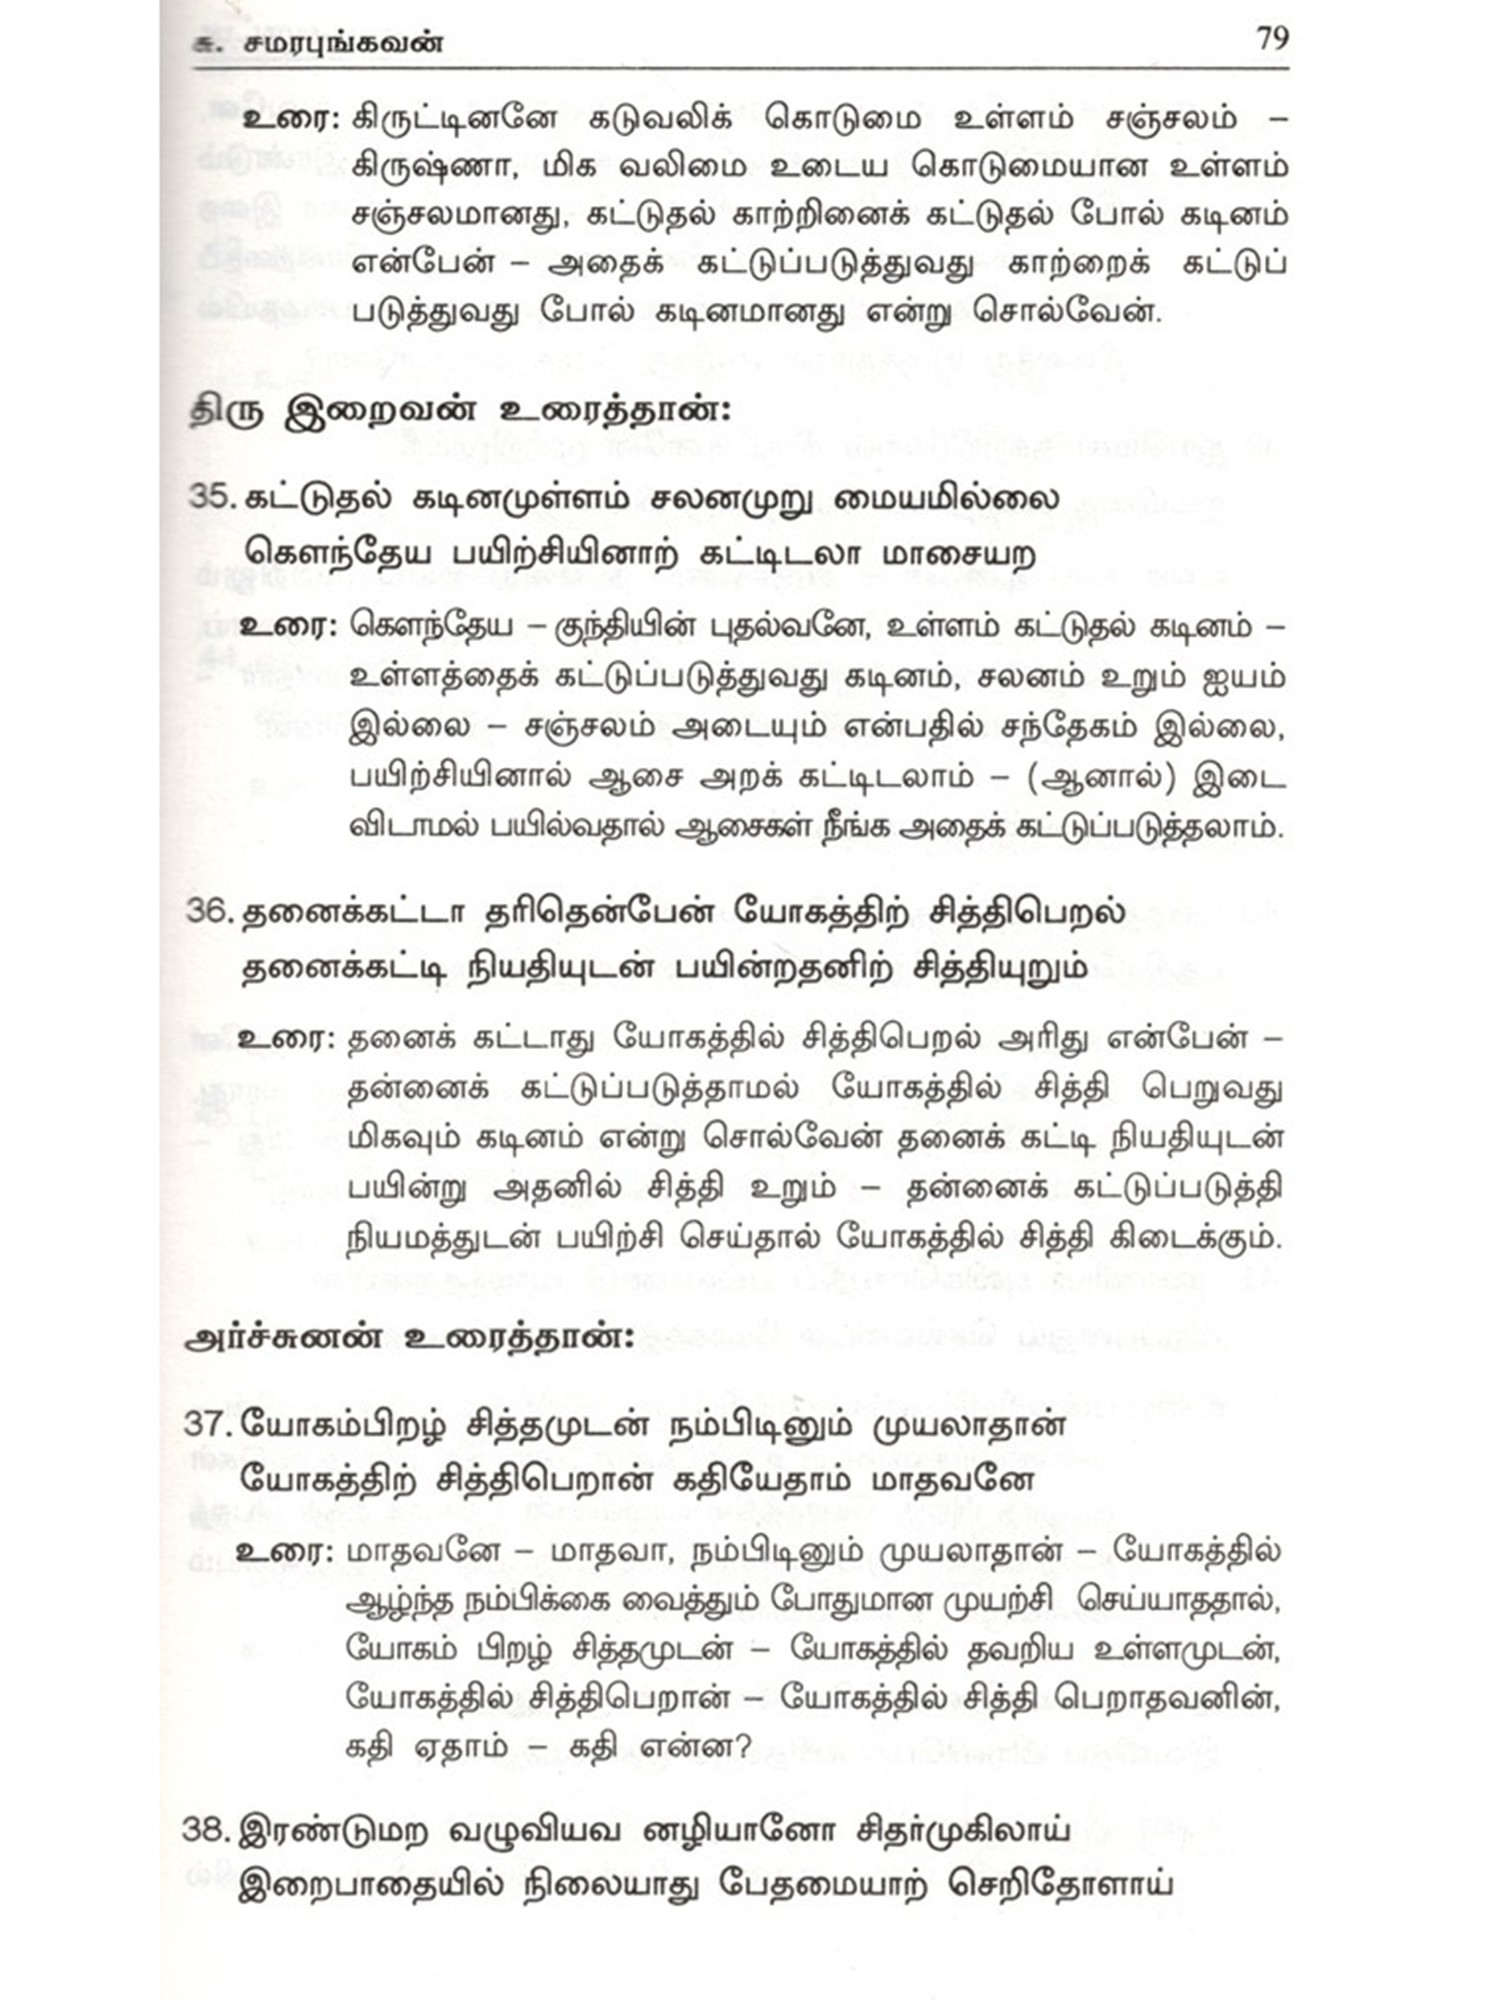 சு. சமரபுங்கவன் 79
உரை: கிருட்டினனே கடுவலிக் கொடுமை உள்ளம் சஞ்சலம் –
கிருஷ்ணா, மிக வலிமை உடைய கொடுமையான உள்ளம்
சஞ்சலமானது, கட்டுதல் காற்றினைக் கட்டுதல் போல் கடினம்
என்பேன் – அதைக் கட்டுப்படுத்துவது காற்றைக் கட்டுப்
படுத்துவது போல் கடினமானது என்று சொல்வேன்.
திரு இறைவன் உரைத்தான்:
35. கட்டுதல் கடினமுள்ளம் சலனமுறு மையமில்லை
கௌந்தேய பயிற்சியினாற் கட்டிடலா மாசையற
உரை: கௌந்தேய – குந்தியின் புதல்வனே, உள்ளம் கட்டுதல் கடினம் –
உள்ளத்தைக் கட்டுப்படுத்துவது கடினம், சலனம் உறும் ஐயம்
இல்லை – சஞ்சலம் அடையும் என்பதில் சந்தேகம் இல்லை,
பயிற்சியினால் ஆசை அறக் கட்டிடலாம் – (ஆனால்) இடை
விடாமல் பயில்வதால் ஆசைகள் நீங்க அதைக் கட்டுப்படுத்தலாம்.
36. தனைக்கட்டா தரிதென்பேன் யோகத்திற் சித்திபெறல்
தனைக்கட்டி நியதியுடன் பயின்றதனிற் சித்தியுறும்
உரை: தனைக் கட்டாது யோகத்தில் சித்திபெறல் அரிது என்பேன் –
தன்னைக் கட்டுப்படுத்தாமல் யோகத்தில் சித்தி பெறுவது
மிகவும் கடினம் என்று சொல்வேன் தனைக் கட்டி நியதியுடன்
பயின்று அதனில் சித்தி உறும் – தன்னைக் கட்டுப்படுத்தி
நியமத்துடன் பயிற்சி செய்தால் யோகத்தில் சித்தி கிடைக்கும்.
அர்ச்சுனன் உரைத்தான்:
37. யோகம்பிறழ் சித்தமுடன் நம்பிடினும் முயலாதான்
யோகத்திற் சித்திபெறான் கதியேதாம் மாதவனே
உரை: மாதவனே – மாதவா, நம்பிடினும் முயலாதான் – யோகத்தில்
ஆழ்ந்த நம்பிக்கை வைத்தும் போதுமான முயற்சி செய்யாததால்,
யோகம் பிறழ் சித்தமுடன் – யோகத்தில் தவறிய உள்ளமுடன்,
யோகத்தில் சித்திபெறான் – யோகத்தில் சித்தி பெறாதவனின்,
கதி ஏதாம் – கதி என்ன?
38. இரண்டுமற வழுவியவ னழியானோ சிதர்முகிலாய்
இறைபாதையில் நிலையாது பேதமையாற் செறிதோளாய்